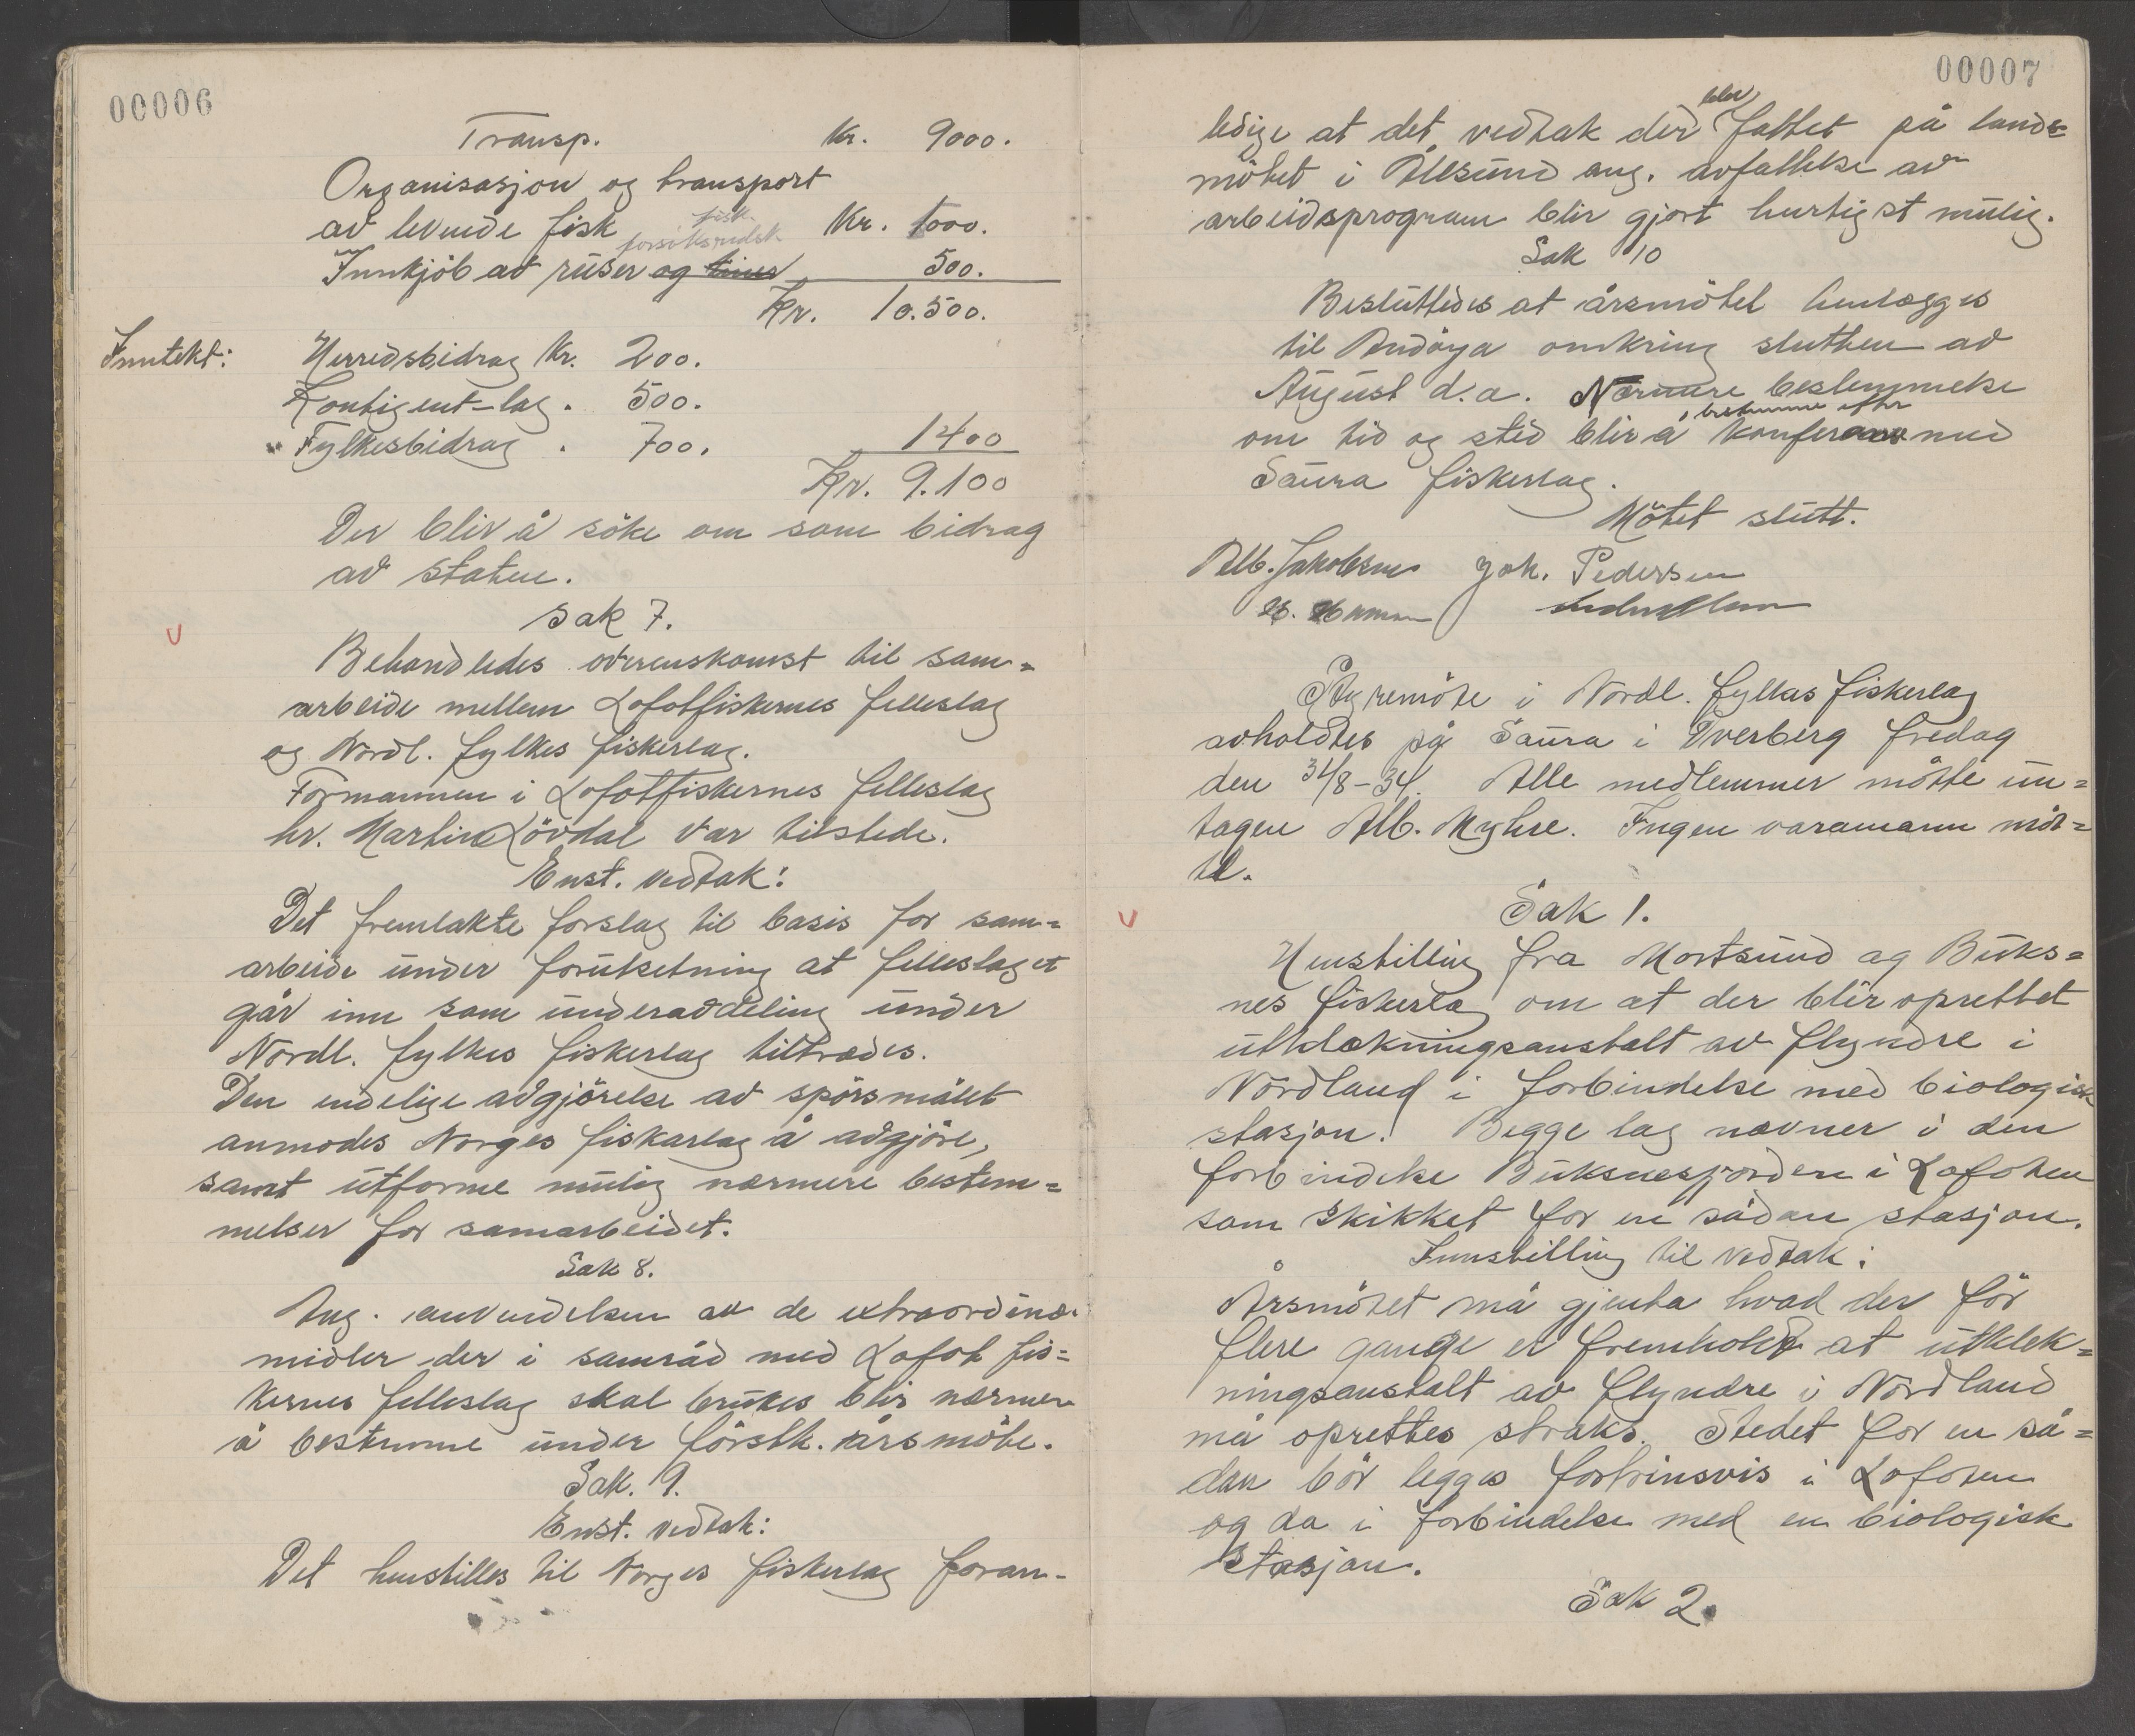 00006
Transp. Kr. 9000.
Organisasjon og transport
av levende fisk Kr. 1000.
fisk
forsöksredsk
Innkjöb av ruser og tiner 500.
Kr. 10.500.
Inntekt: Herredsbidrag Kr. 200.
Kontigent-lag. 500.
Fylkesbidrag . 700. 1400
Kr. 9.100
Der blir å söke om som bidrag
av staten.
Sak 7.
Behandledes overenskomst til sam=
arbeide mellem Lofotfiskernes felleslag
og Nordl. fylkes fiskerlag.
Formannen i Lofotfiskernes felleslag
hr. Martin Lövdal var tilstede.
Enst. vedtak:
Det fremlakte forslag til basis for sam=
arbeide under forutsetning at felleslaget
går inn som underavdeling under
Nordl. fylkes fiskerlag tiltredes.
Den endelige avgjörelse av spörsmålet
anmodes Norges fiskarlag å avgjöre,
samt utforme mulig nærmere bestem=
melser for samarbeidet.
Sak 8.
Ang. anvendelsen av de extraordinær
midler der i samråd med Lofot fis=
kernes felleslag skal brukes blir nærmere
å bestemme under förstk. årsmöte.
Sak. 9.
Enst. vedtak:
Det henstilles til Norges fiskerlag foran-
00007
blev
ledige at det vedtak der fattet på lands=
mötet i Ålesund ang. avfattelse av
arbeidsprogram blir gjort hurtigst mulig.
Sak 10
Besluttedes at årsmötet henlegges
til Andöya omkring slutten av
August d.a. Nærmere bestemmelse
bestemme efter
om tid og sted blir å konferanse med
Saura fiskerlag.
Mötet slutt.
Alb. Jakobsen Joh. Pedersen
Styremöte i Nordl. fylkes fiskerlag
avholdtes på Saura i Dverberg fredag
den 31/8-34. Alle medlemmer mötte un=
tagen Alb. Myhre. Ingen varamann möt=
te.
Sak 1.
Henstilling fra Mortsund og Buks=
nes fiskerlag om at der blir oprettet
utklekningsanstalt av flyndre i
Nordland i forbindelse med biologisk
stasjon. Begge lag nevner i den
forbindelse Buksnesfjorden i Lofoten
som skikket for en sådan stasjon.
Innstilling til vedtak:
Årsmötet må gjenta hvad der för
flere gange er fremholdt at utklek=
ningsanstalt av flyndre i Nordland
må oprettes straks. Stedet for en så=
dan bör legges fortrinsvis i Lofoten
og da i forbindelse med en biologisk
stasjon.
Sak 2.